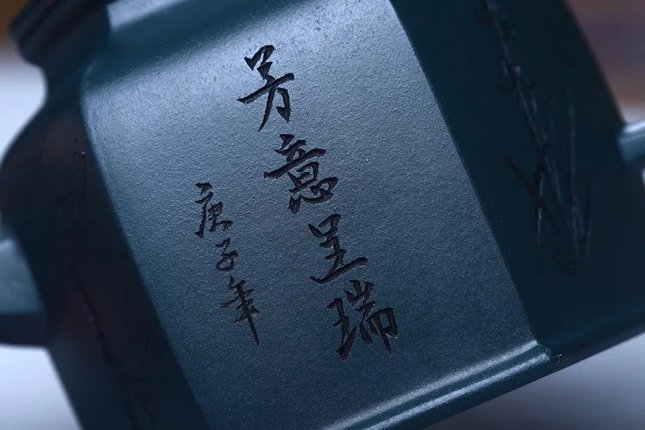 芳意呈瑞
庚子年